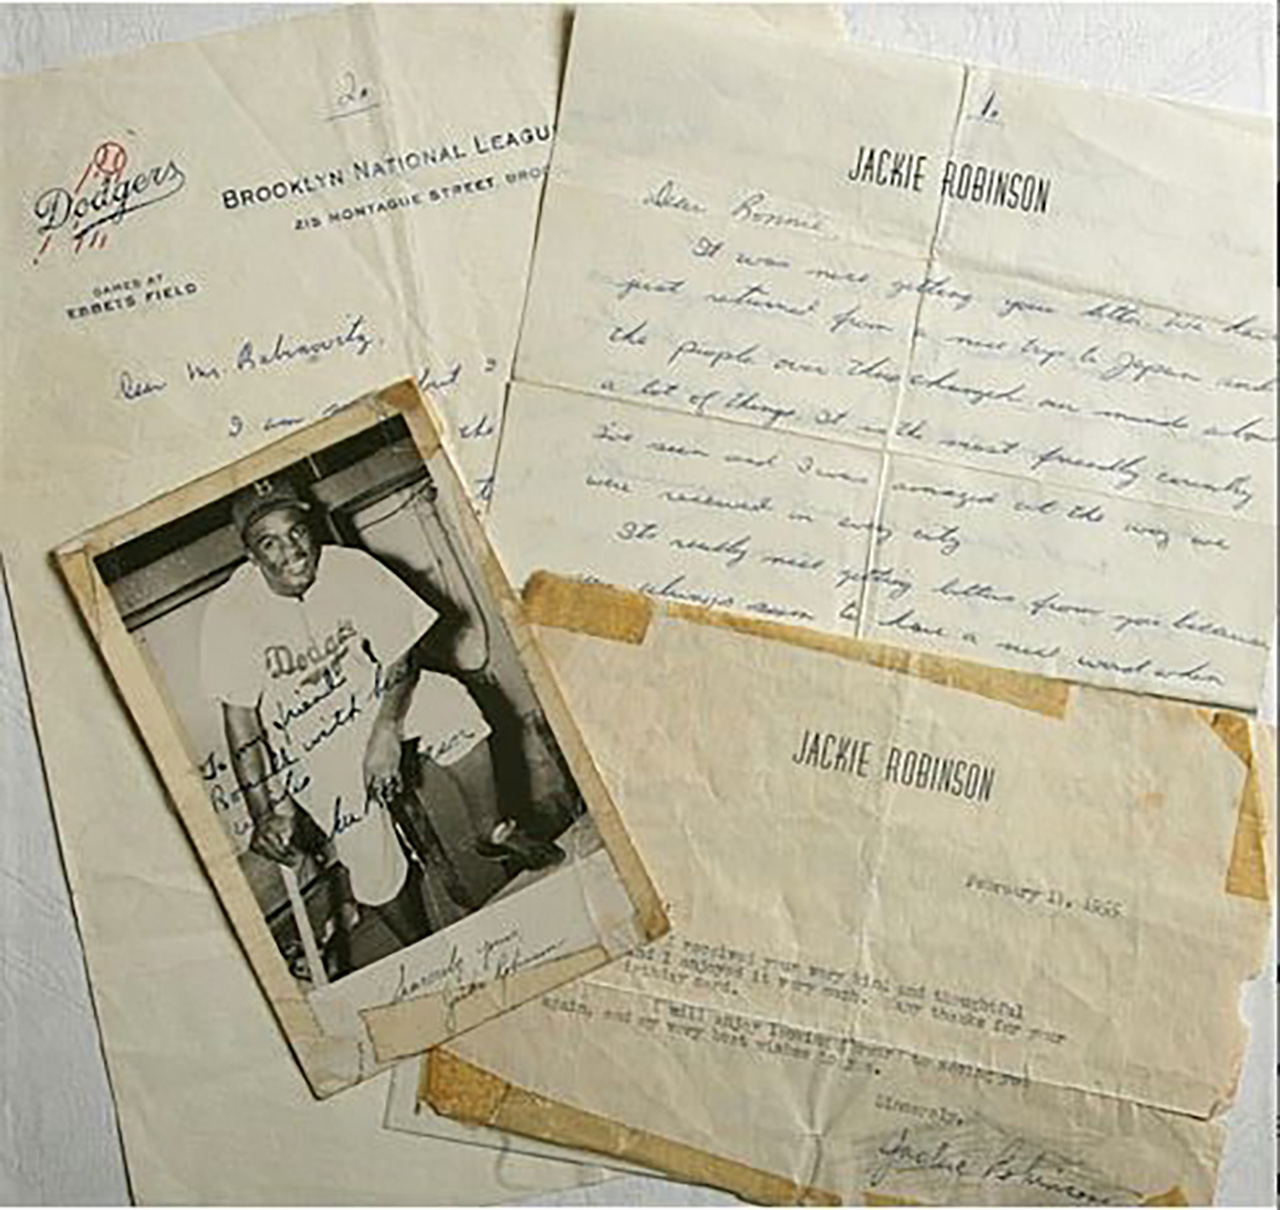 2.
Dodgers
BROOKLYN NATIONAL LEAGU
215 MONTAGUE STREET BROO
GAMES AT
EBBETS FIELD
Dear Mr. Rabinowitz,
I am
that I
the
1.
JACKIE ROBINSON
Dear Ronnie,
It was nice getting your letter. We have
just returned from a nice trip to Japan and
the people over there changed our minds abou
a lot of things. It is the most friendly country
I've seen and I was amazed at the way we
were received in every city
It's really nice getting letters from you because
you always seem to have a nice word when
B
Dodgers
To my friend
Ronald with best
wishes
Sincerely yours
Jackie Robinson
JACKIE ROBINSON
February 11, 1955
I received your very kind and thoughtful
and I enjoyed it very much. My thanks for your
birthday card.
I will enjoy
again, and my very best wishes to you.
Sincerely,
Jackie Robinson